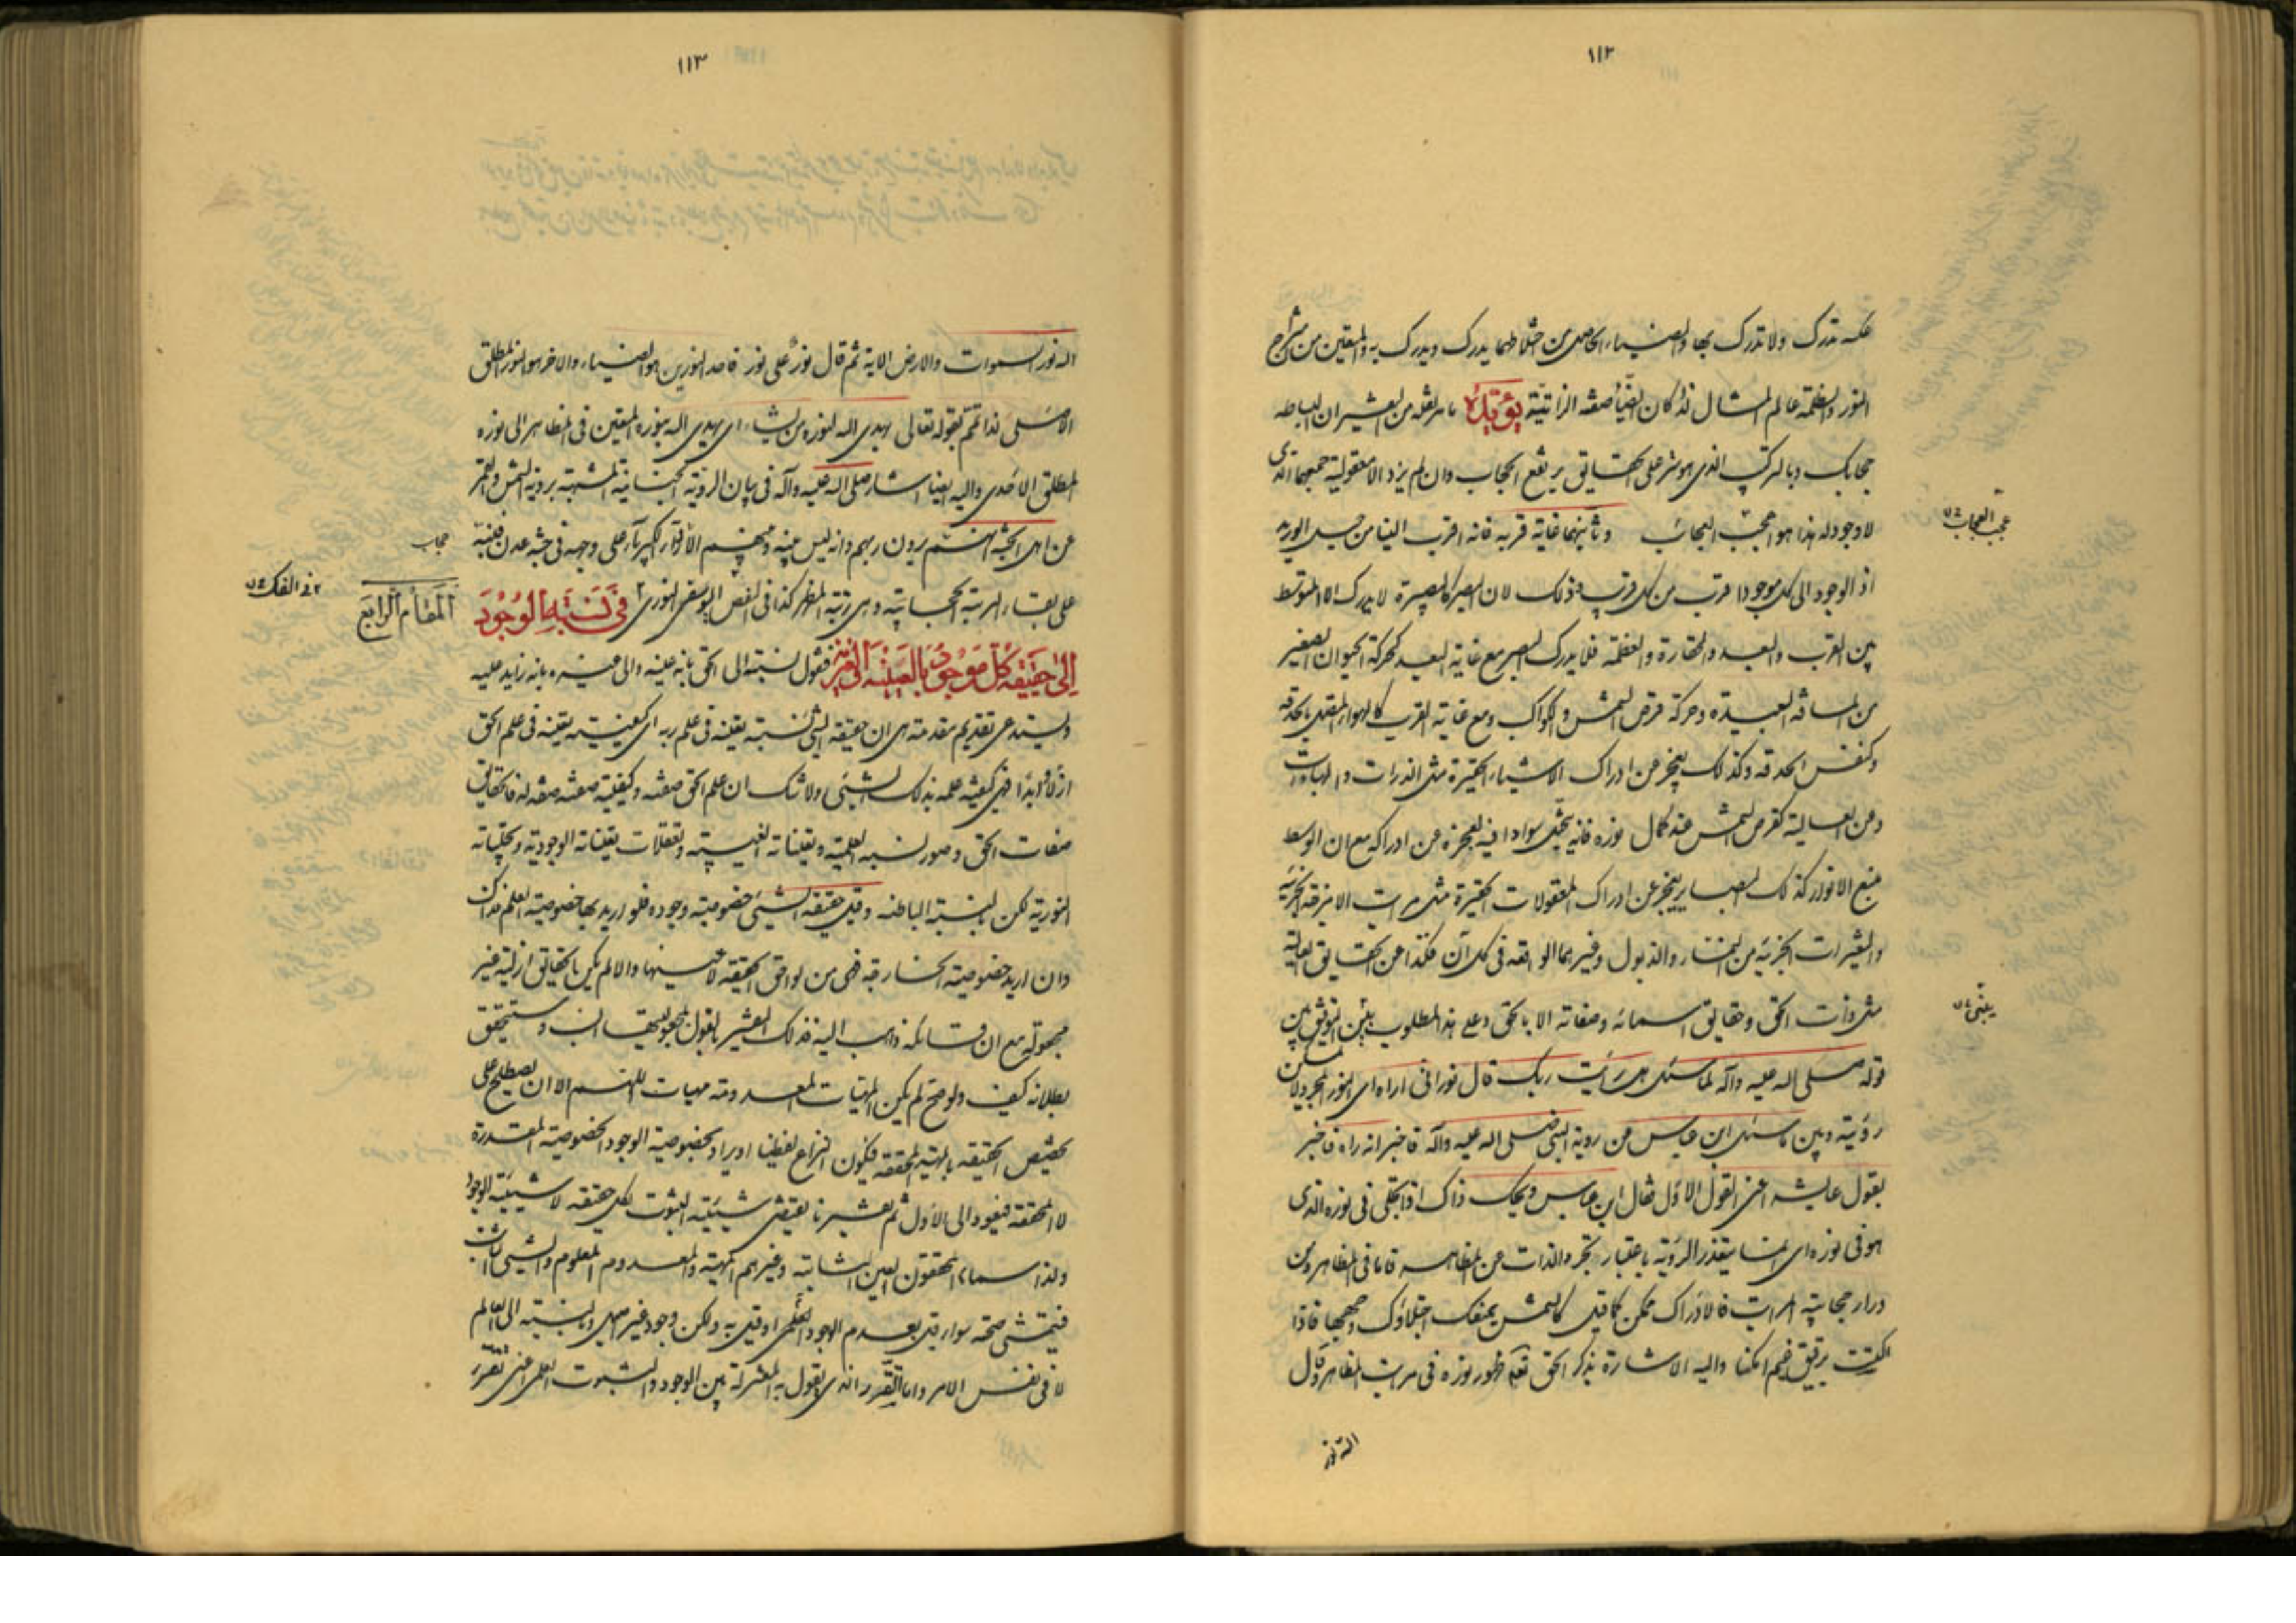 ١١٢
عكسه تدرك ولا تدرك بها والضياء الحاصل من اختلاطهما يدرك ويدرك به والمتعين من امتزاج
النور والظلمة عالم المثال لذا كان الضياء صفته الذاتية يؤيده ما سر نقله من التفسير ان البساطة
حجابك وبالتركيب الذي هو ستر على الحقايق يرتفع الحجاب وان لم يزد الا معقولية جمعهما الذي
لا وجود له هذا هو اعجب العجائب وثانيهما غاية قربه فانه اقرب الينا من حبل الوريد
عجب العجاب
اذ الوجود الى كل موجود اقرب من كل قريب وذلك لان البصر كالبصيرة لا يدرك الا المتوسط
بين القرب والبعد والحقارة والعظمة فلا يدرك البصر مع غاية البعد كحركة الحيوان الصغير
من المسافة البعيدة وحركة قرص الشمس والكواكب ومع غاية القرب كالهواء المتصل بالحدقة
وكنفس الحدقة وكذلك يعجز عن ادراك الاشياء الحقيرة مثل الذرات والهباءات
وعن العالية كقرص الشمس عند كمال نوره فانه يتخيل سوادا فيه لعجزه عن ادراكه مع ان الوسط
منبع الانوار كذلك البصاير يعجز عن ادراك المعقولات الحقيرة مثل مراتب الامزجة الجزئية
والتغيرات الجزئية من النماء والذبول وغيرهما الواقعة في كل آن فكذا عن الحقايق العالية
مثل ذات الحق وحقايق اسمائه وصفاته الا بالحق وعلى هذا المطلوب يبتني التوفيق بين
يبتنى
قوله صلى الله عليه وآله لما سئل هل رأيت ربك قال نوراني اراه اي النور المجرد لا يمكن
رؤيته وبين ما سئل ابن عباس عن روية النبي صلى الله عليه وآله فاخبر انه راه فاخبر
بقول عايشة اعني القول الاول فقال ابن عباس ويحك ذاك اذا تجلى في نوره الذي
هو في نوره اي انما يتعذر الرؤية باعتبار تجرد الذات عن المظاهر فاما في المظاهر ومن
وراء حجابية المراتب فالادراك ممكن كما قيل كالشمس يمنعك اجتلاؤك وجهها فاذا
اكتست برقيق غيم امكنا واليه الاشارة بذكر الحق تعالى ظهور نوره في مراتب المظاهر وقال
الله نور
١١٣
الله نور السموات والارض الاية ثم قال نور على نور فاحد النورين هو الضياء والاخر هو النور المطلق
الاصلي لذا تمم بقوله تعالى يهدي الله لنوره من يشاء اي يهدي الله بنوره المتعين في المظاهر الى نوره
المطلق الاحدي واليه ايضا اشار صلى الله عليه وآله في بيان الروية الجنانية المشبهة بروية الشمس والقمر
عن اهل الجنة انهم يرون ربهم وانه ليس بينه وبينهم الا رداء الكبرياء على وجهه في جنة عدن فنبه
حجاب
على بقاء الرتبة الحجابية وهي رتبة المظهر كذا في الفص اليوسفي النوري ٢ في نسبة الوجود
٢ في الفك
المقام الرابع
الى حقيقة كل موجود بالعينية او الغيرية فنقول نسبته الى الحق بانه عينه والى غيره بانه زايد عليه
ويستدعي تقديم مقدمة هي ان حقيقة الشيء نسبة تعينه في علم ربه اي كيفية تعينه في علم الحق
ازلا وابدا فهي كيفية علمه بذلك الشيئ ولا شك ان علم الحق صفته وكيفية صفته صفة له فالحقايق
صفات الحق وصور نسبه العلمية وتعيناته الغيبية وتعقلات تعيناته الوجودية وتجلياته
النورية لكن بالنسبة الباطنة وقيل حقيقة الشيئ خصوصية وجوده فلو اريد بها خصوصية العلم فذاك
وان اريد خصوصيته الخارجية فهي من لواحق الحقيقة لا عينها والا لم يكن الحقايق ازلية غير
مجعولة مع ان قائله ذاهب اليه فذلك التفسير بالقول بمجعوليتها انسب وستحقق
بطلانه كيف ولو صح لم يكن المهيات المعدومة مهيات اللهم الا ان يصطلح على
تخصيص الحقيقة بالمهية المحققة فيكون النزاع لفظيا او يراد بخصوصية الوجود الخصوصية المقدرة
لا المحققة فيعود الى الاول ثم تفسيرنا يقتضي شيئية الثبوت لكل حقيقة لا شيئية الوجود
ولذا سماها المحققون العين الثابتة وغيرهم المهية والمعدوم المعلوم والشيئ الثابت
فيتمشى صحته سواء قيل بعدم الوجود العلمي او قيل به ولكن وجود غير اصلي وبالنسبة الى العالم
لا في نفس الامر واما التقرر الذي يقول به المعتزلة بين الوجود والثبوت العلمي اعني تقرر